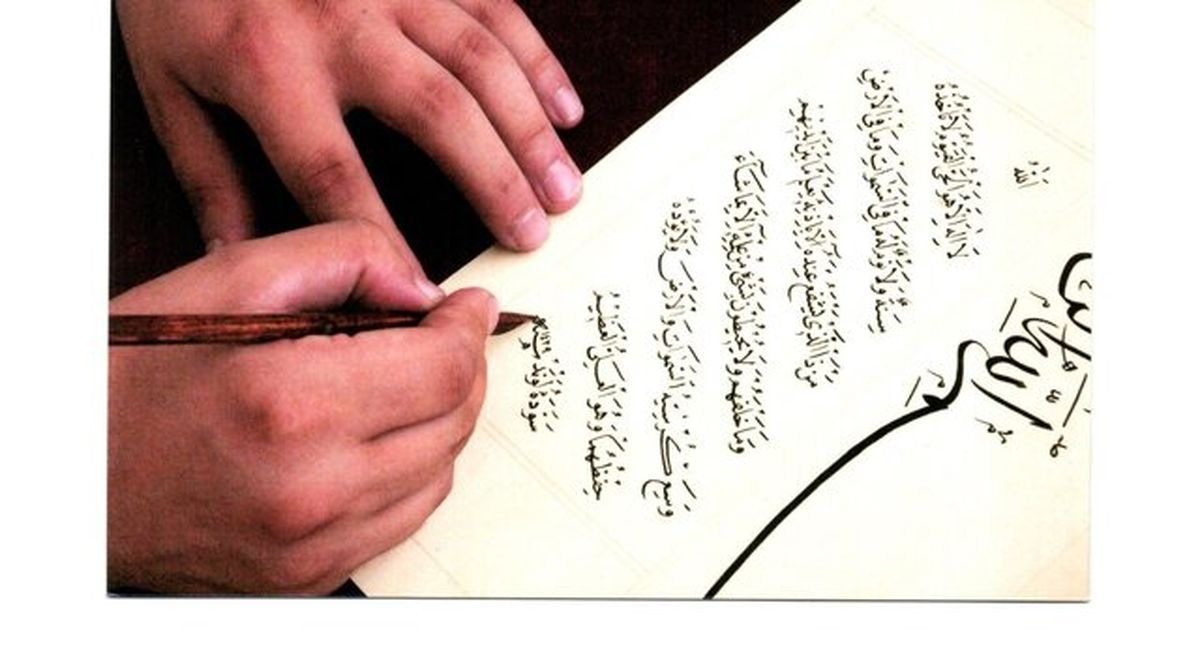 اَللّٰهُ
لَا اِلٰهَ اِلَّا هُوَ الْحَيُّ الْقَيُّومُ لَا تَأْخُذُهُ
سِنَةٌ وَلَا نَوْمٌ لَهُ مَا فِي السَّمٰوَاتِ وَمَا فِي الْاَرْضِ
مَنْ ذَا الَّذِي يَشْفَعُ عِنْدَهُ اِلَّا بِاِذْنِهِ يَعْلَمُ مَا بَيْنَ اَيْدِيهِمْ
وَمَا خَلْفَهُمْ وَلَا يُحِيطُونَ بِشَيْءٍ مِنْ عِلْمِهِ اِلَّا بِمَا شَاءَ
وَسِعَ كُرْسِيُّهُ السَّمٰوَاتِ وَالْاَرْضَ وَلَا يَؤُدُهُ
حِفْظُهُمَا وَهُوَ الْعَلِيُّ الْعَظِيمُ
سَوَّدَهُ